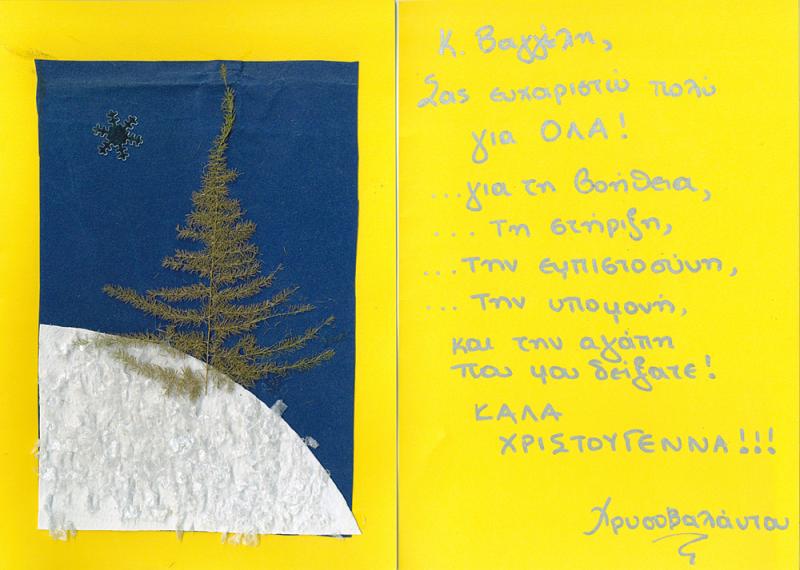 Κ. Βαγγέλη,
Σας ευχαριστώ πολύ
για ΟΛΑ!
...για τη βοήθεια,
... τη στήριξη,
...την εμπιστοσύνη,
... την υπομονή,
και την αγάπη
που μου δείξατε!
ΚΑΛΑ
ΧΡΙΣΤΟΥΓΕΝΝΑ!!!
Χρυσοβαλάντου